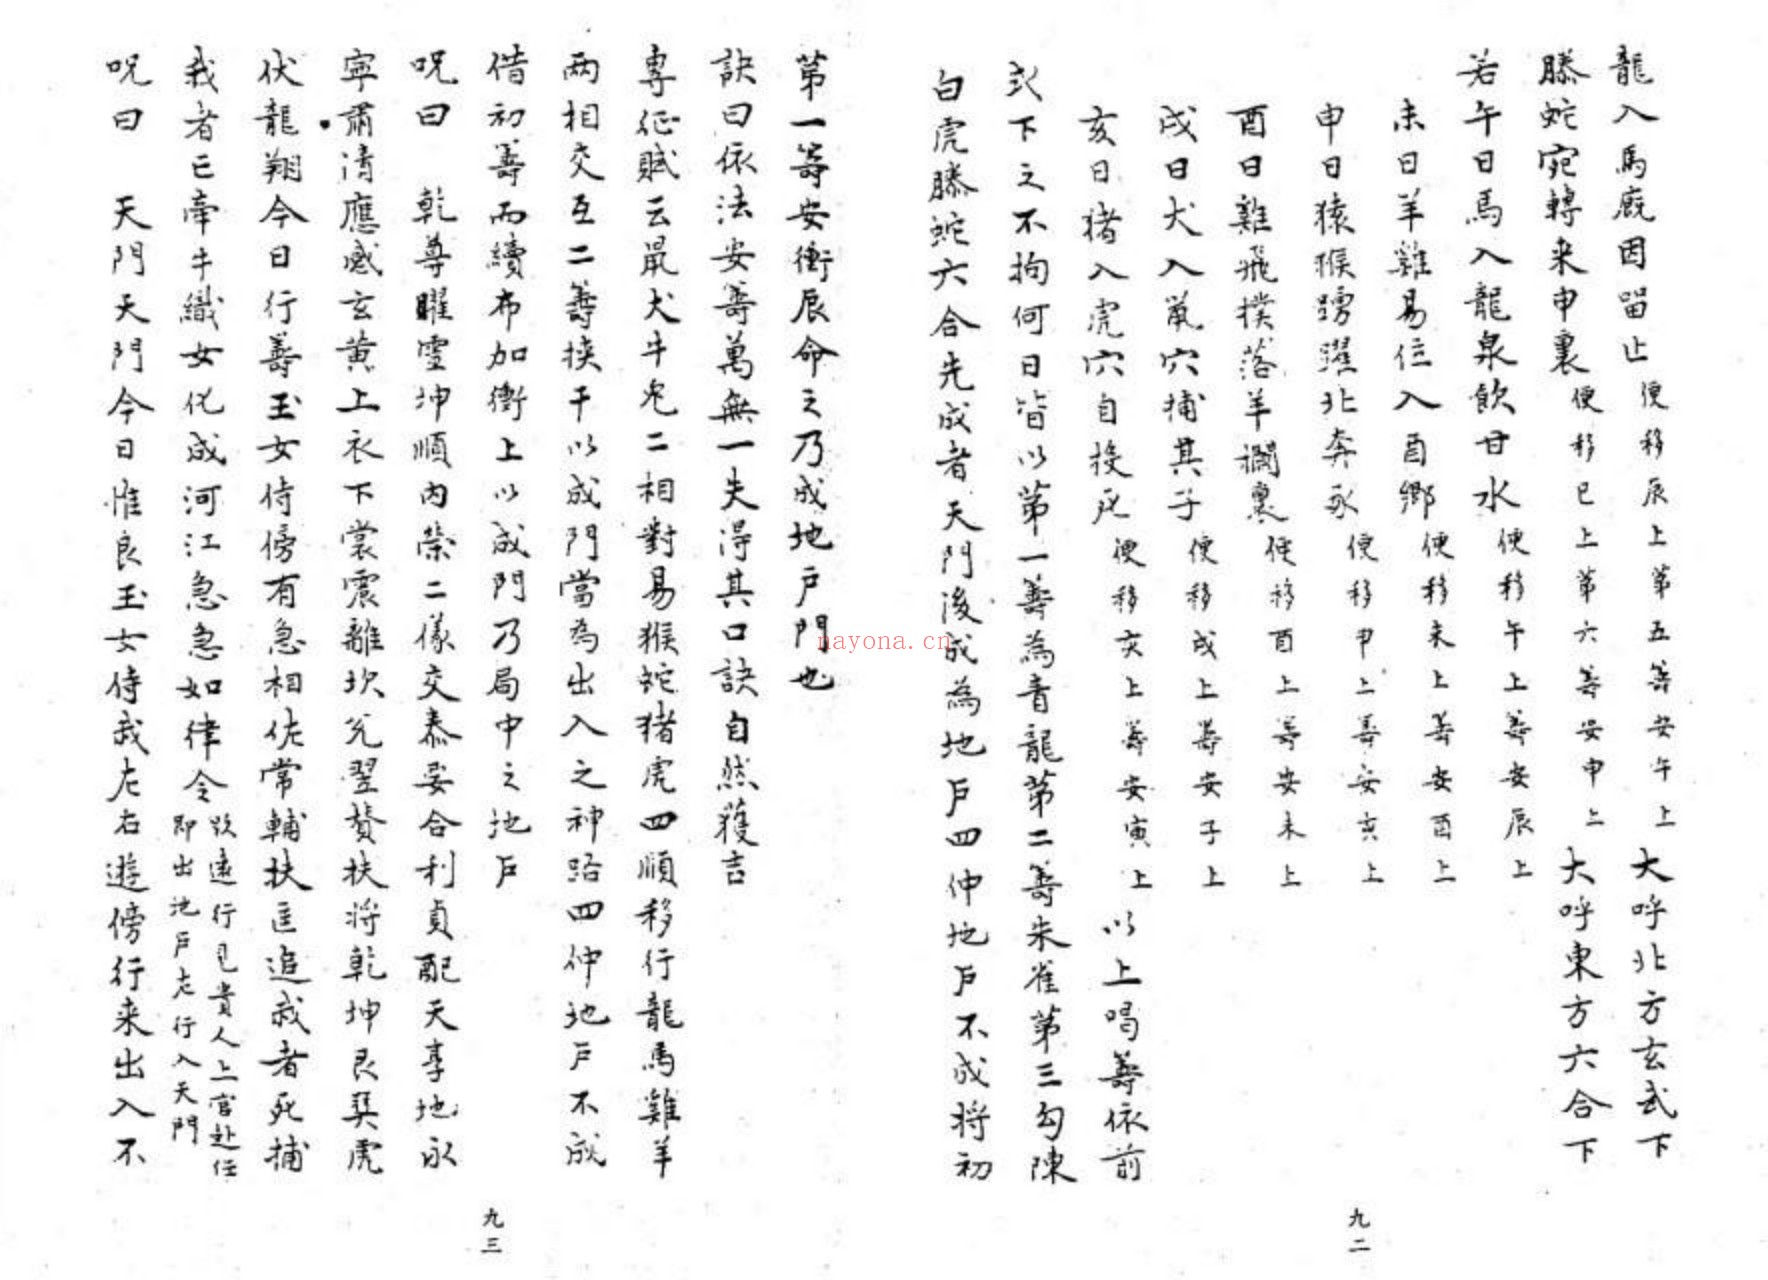 龍入馬廄因留止便移辰上第五筭安午上大呼北方玄武下
螣蛇宛轉来申裏便移巳上第六筭安申上大呼東方六合下
若午日馬入龍泉飲甘水便移午上筭安辰上
未日羊雞易位入酉鄉便移未上筭安酉上
申日猿猴踴躍北奔豕便移申上筭安亥上
酉日雞飛撲落羊欄裏便移酉上筭安未上
戌日犬入鼠穴捕其子便移戌上筭安子上
亥日猪入虎穴自投死便移亥上筭安寅上以上喝筭依前
式下之不拘何日皆以第一筭為青龍第二筭朱雀第三勾陳
白虎螣蛇六合先成者天門後成為地戶四仲地戶不成将初
九二
第一筭安衝辰命之乃成地戶門也
訣曰依法安筭萬無一失得其口訣自然獲吉
專征賦云鼠犬牛兔二相對易猴蛇猪虎四順移行龍馬雞羊
两相交互二筭挾干以成門當為出入之神路四仲地戶不成
借初筭而續布加衝上以成門乃局中之地戶
呪曰 乾尊曜靈坤順內榮二儀交泰要合利貞配天享地永
寧肅清應感玄黄上衣下裳震離坎兌翌贊扶将乾坤艮巽虎
伏龍翔今日行筭玉女侍傍有急相佐常輔扶匡追我者死捕
我者亡牽牛織女化成河江急急如律令欲遠行見貴人上官赴任
即出地戶走行入天門
呪曰 天門天門今日惟良玉女侍我左右遊傍行来出入不
九三
nayona.cn